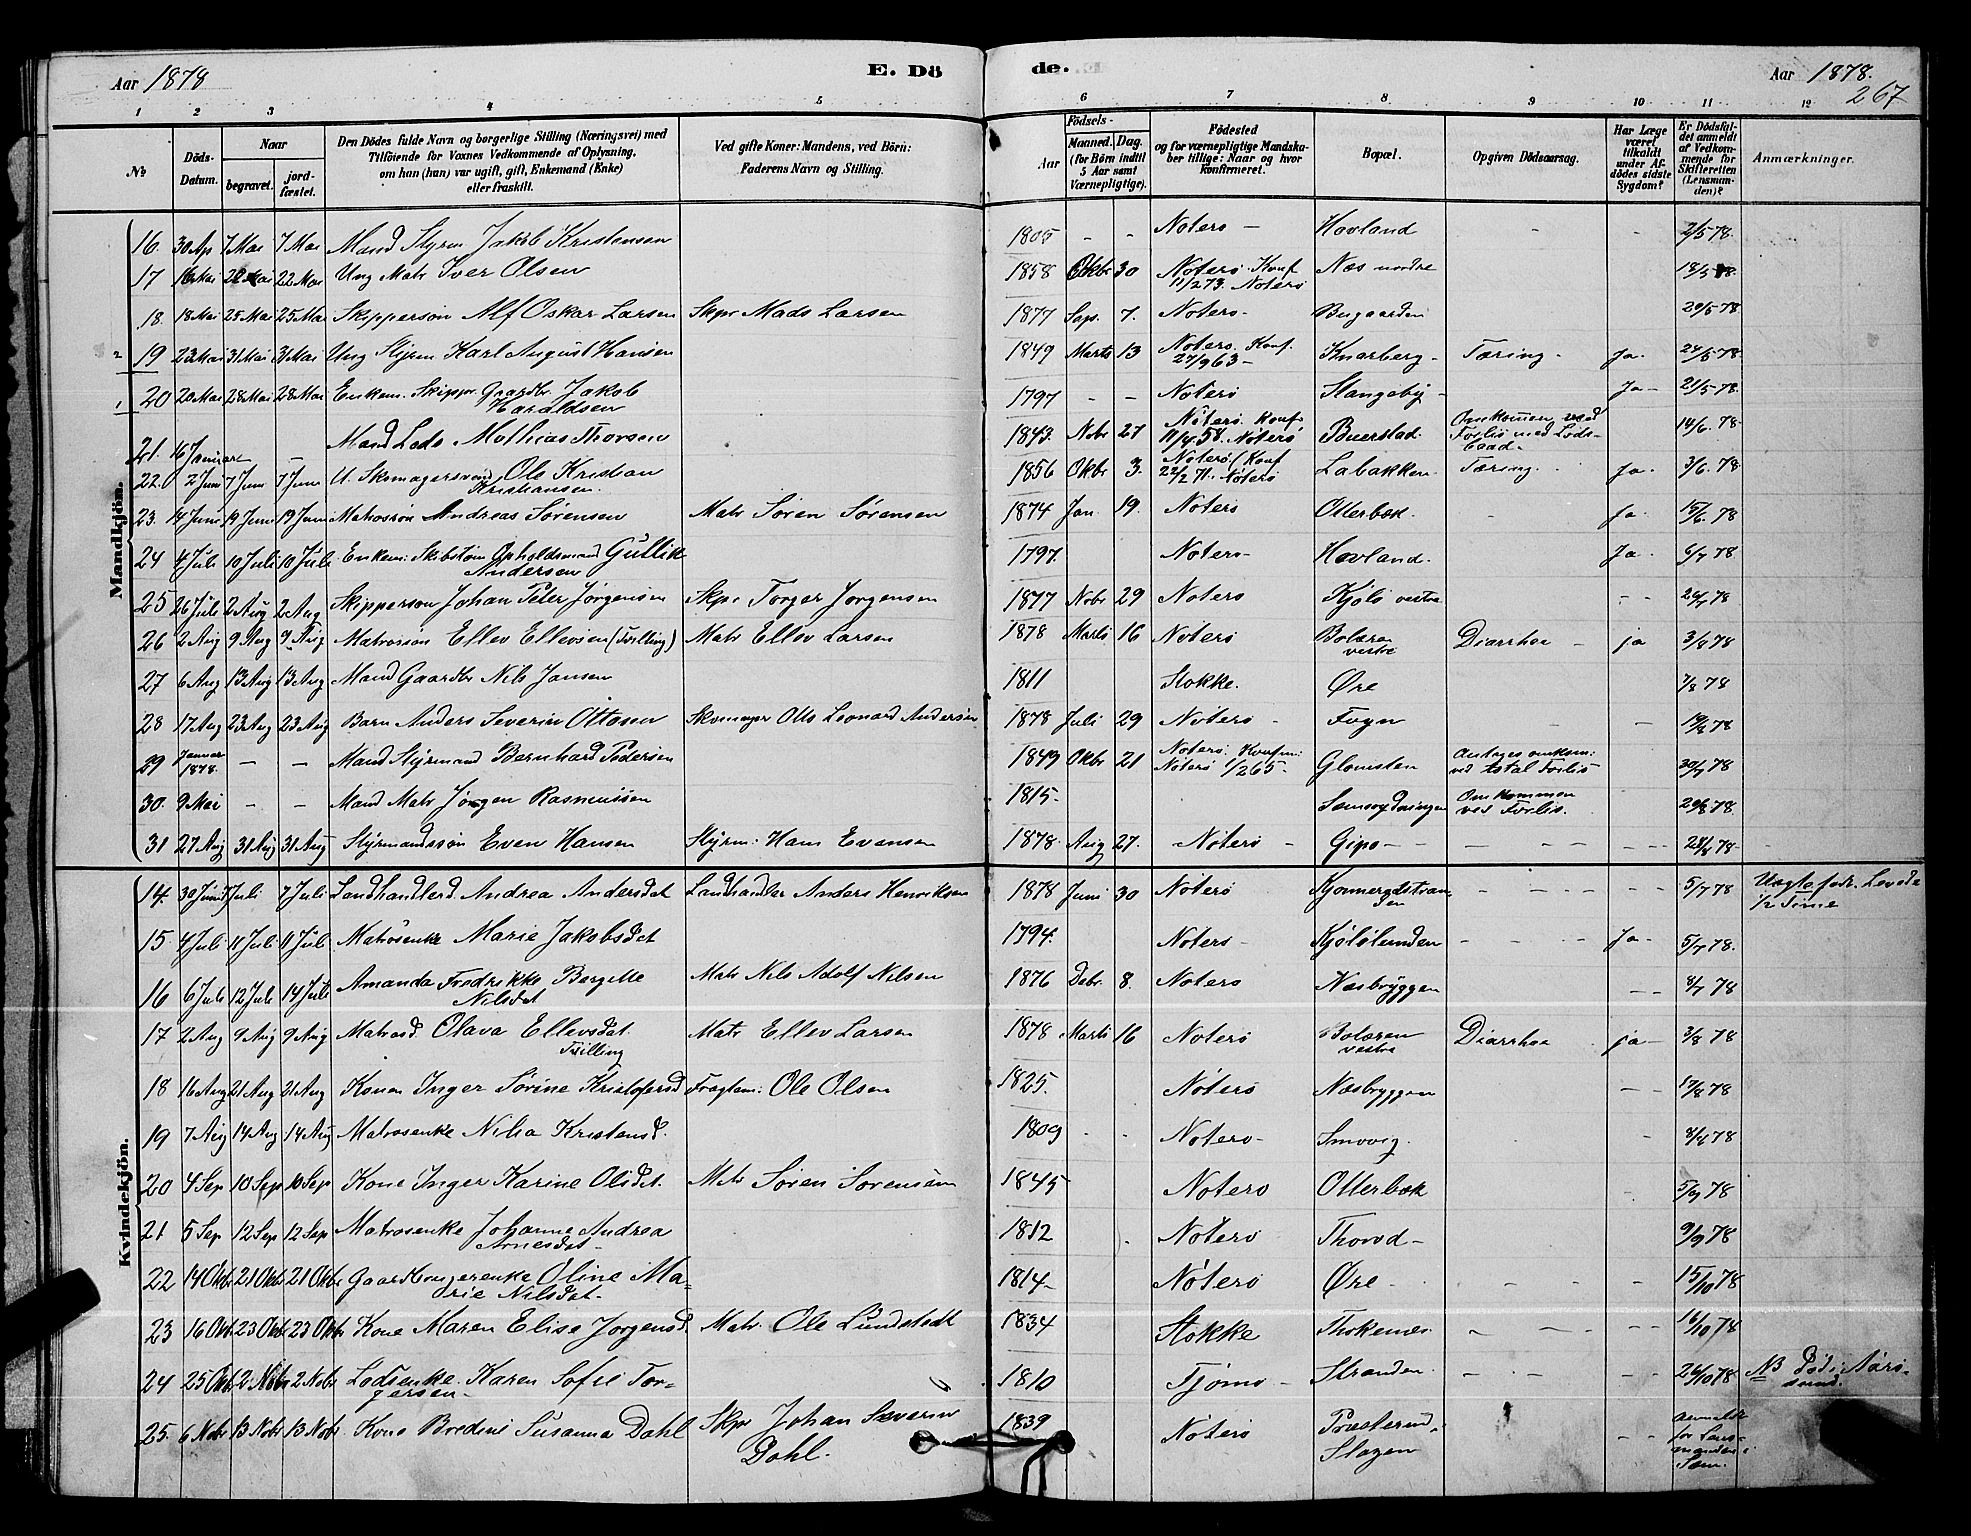 Aar 1878 E. Dö de. Aar 1878.
267
1 2 3 4 5 6 7 8 9 10 11 12
No Döds-Datum. Naar begravet. jordfæstet. Den Dödes fulde Navn og borgerlige Stilling (Næringsvei) med Tilföiende for Voxnes Vedkommende af Oplysning, om han (hun) var ugift, gift, Enkemand (Enke) eller fraskilt. Ved gifte Koner: Mandens, ved Börn: Faderens Navn og Stilling. Födsels- Aar Maaned. Dag. (for Börn indtil 5 Aar samt Værnepligtige). Födested og for værnepligtige Mandskaber tillige: Naar og hvor konfirmeret. Bopæl. Opgiven Dödsaarsag. Har Læge været tilkaldt under Afdödes sidste Sygdom? Er Dödsfaldet anmeldt af Vedkommende for Skifteretten (Lensmanden)? Anmærkninger.
Mandkjön.
16. 30 Ap 7 Mai 7 Mai Mand Styrm Jakob Kristensen 1805 - - Noterö - Hovland - - 2/5 78.
17 16 Mai 22 Mai 22 Mai Ung Matr Iver Olsen 1858 Oktbr 30 Noterö. Konf 11/2 73. Noterö Næs nordre 18/5 78.
18. 18 Mai 25 Mai 25 Mai Skippersön Alf Oskar Larsen Skpr Mads Larsen 1877 Sep. 7. Noterö - Bugaarden 20/5 78.
2 19 23 Mai 31 Mai 31 Mai Ung Styrm Karl August Hansen 1849 Marts 13 Noterö. Konf. 27/9 63 - Knarberg - Tæring - Ja - 24/5 78.
1 20 20 Mai 28 Mai 28 Mai Enkem. Skippr Gaardbr Jakob Haraldsen 1797 - - Noterö Stangeby - Ja - 21/5 78.
21. 16 Januar - Mand Lods Mathias Thorsen 1843. Nobr 27 Nöterö. Konf. 11/4 58. Nöterö Buerstad. Omkommen ved Forlis med Lodsbaad. 14/6. 78
22. 2 Juni 7 Juni 7 Juni U. Skomagersvend Ole Kristian Kristiansen. 1856 Oktbr 3. Noterö (Konf 22/2 71. Nöterö Labakken Tæring. Ja. 3/6. 78
23. 14 Juni 19 Juni 19 Juni Matrossön Andreas Sörensen Matr Sören Sörensen 1874 Jan. 19. Noterö Otterbæk. - ja. 15/6. 78
24 4 Juli 10 Juli 10 Juli Enkem: Skibstöm Opholdsmand Gullik Andersen 1797. Noterö - Hovland. Ja. 6/7 78
25 26 Juli 2 Aug 2 Aug Skippersön Johan Peter Jörgensen Skpr Torger Jörgensen 1877 Nobr 29 Noterö Kjölö vestre - - 26/7 78
26 2 Aug 9 Aug 9 Aug Matrossön Ellev Ellevsen (Tvilling) Matr Ellev Larsen 1878 Marts 16 Nöterö Bolæren vestre Diarrhoe - ja 3/8 78
27 6 Aug 13 Aug 13 Aug Mand Gaardbr Nils Jansen 1811 Stokke. Øre 7/8 78
28 17 Aug 23 Aug 23 Aug Barn Anders Severin Ottosen Skomager Otto Leonard Andersen 1878 Juli 29 Nöterö - Foyn - - 19/8 78
29 Januar 1878. - - Mand Styrmand Bernhard Pedersen 1849 Oktbr 21 Nöterö. Konfm: Nöterö 1/2 65 - Glomsten Antages omkom: ved total Forlis 30/7 78
30. 9 Mai - - Mand Matr Jörgen Rasmussen 1815. Omkommen ved Forlis. 20/8 78.
31 27 Aug 31 Aug 31 Aug Styrmandssön Even Hansen Styrm: Hans Evensen 1878. Aug 27. Nöterö - Gipö - - - - - 28/8 78 -
Kvindekjön.
14. 30 Juni 7 Juli 7 Juli Landhandlerd. Andrea Andersdat Landhandler Anders Henriksen 1878 Juni 30 Nöterö Kjønnerødstranden - - - - - 5/7 78 Uægte født. Levede 1/2 Time
15 4 Juli 11 Juli 11 Juli Matrosenke Marie Jakobsdat 1794. Noterö - Kjölölunden - - - - Ja - 5/7 78.
16 6 Juli 12 Juli 14 Juli Amanda Fredrikke Bergitte Nilsdat Matr Nils Adolf Nilsen 1876 Debr. 8. Noterö Næsbryggen - - 8/7 78
17 2 Aug 9 Aug 9 Aug Matrosd. Olava Ellevsdat. Tvilling Matr Ellev Larsen 1878 Marts 16 Noterö Bolæren vestre Diarrhoe ja - 3/8 78
18 16 Aug 21 Aug 21 Aug Konen Inger Sörine Kristofersd Fragtem: Ole Olsen 1825. Nöterö Næsbryggen - - 17/8 78
19 7 Aug 14 Aug 14 Aug Matrosenke Nilia Kristensd. 1809 - - Noterö - Smovig. - 8/8 78
20 4 Sep 10 Sep 10 Sep Kone Inger Karine Olsdat. Matr Sören Sörensen 1845 Noterö Otterbæk 5/9 78
21 5 Sep 12 Sep 12 Sep Matrosenke Johanne Andrea Arnesdat - 1812 Noterö Thorød - 9/9 78
22 14 Oktbr 21 Oktbr 21 Oktbr Gaardbrugerenke Oline Marie Nilsdat. 1814 - Nöterö Øre - - - - 15/10 78
23 16 Oktbr 23 Oktbr 23 Oktbr Kone Maren Elise Jörgensd Matr. Ole Lundstedt 1834 Stokke Thokenes. - - - - - 16/10 78
24 25 Oktbr 2 Nobr 2 Nobr Lodsenke. Karen Sofie Torgersen - 1810 Tjømö - Stranden - - - - 26/10 78 NB Død i Aarösund.
25. 6 Nobr 13 Nobr 13 Nobr Kone Bredine Susanna Dahl Skpr Johan Severin Dahl. 1839 Nöterö Præsterud, Slagen - - anmeldt for Lensmanden i Sem.